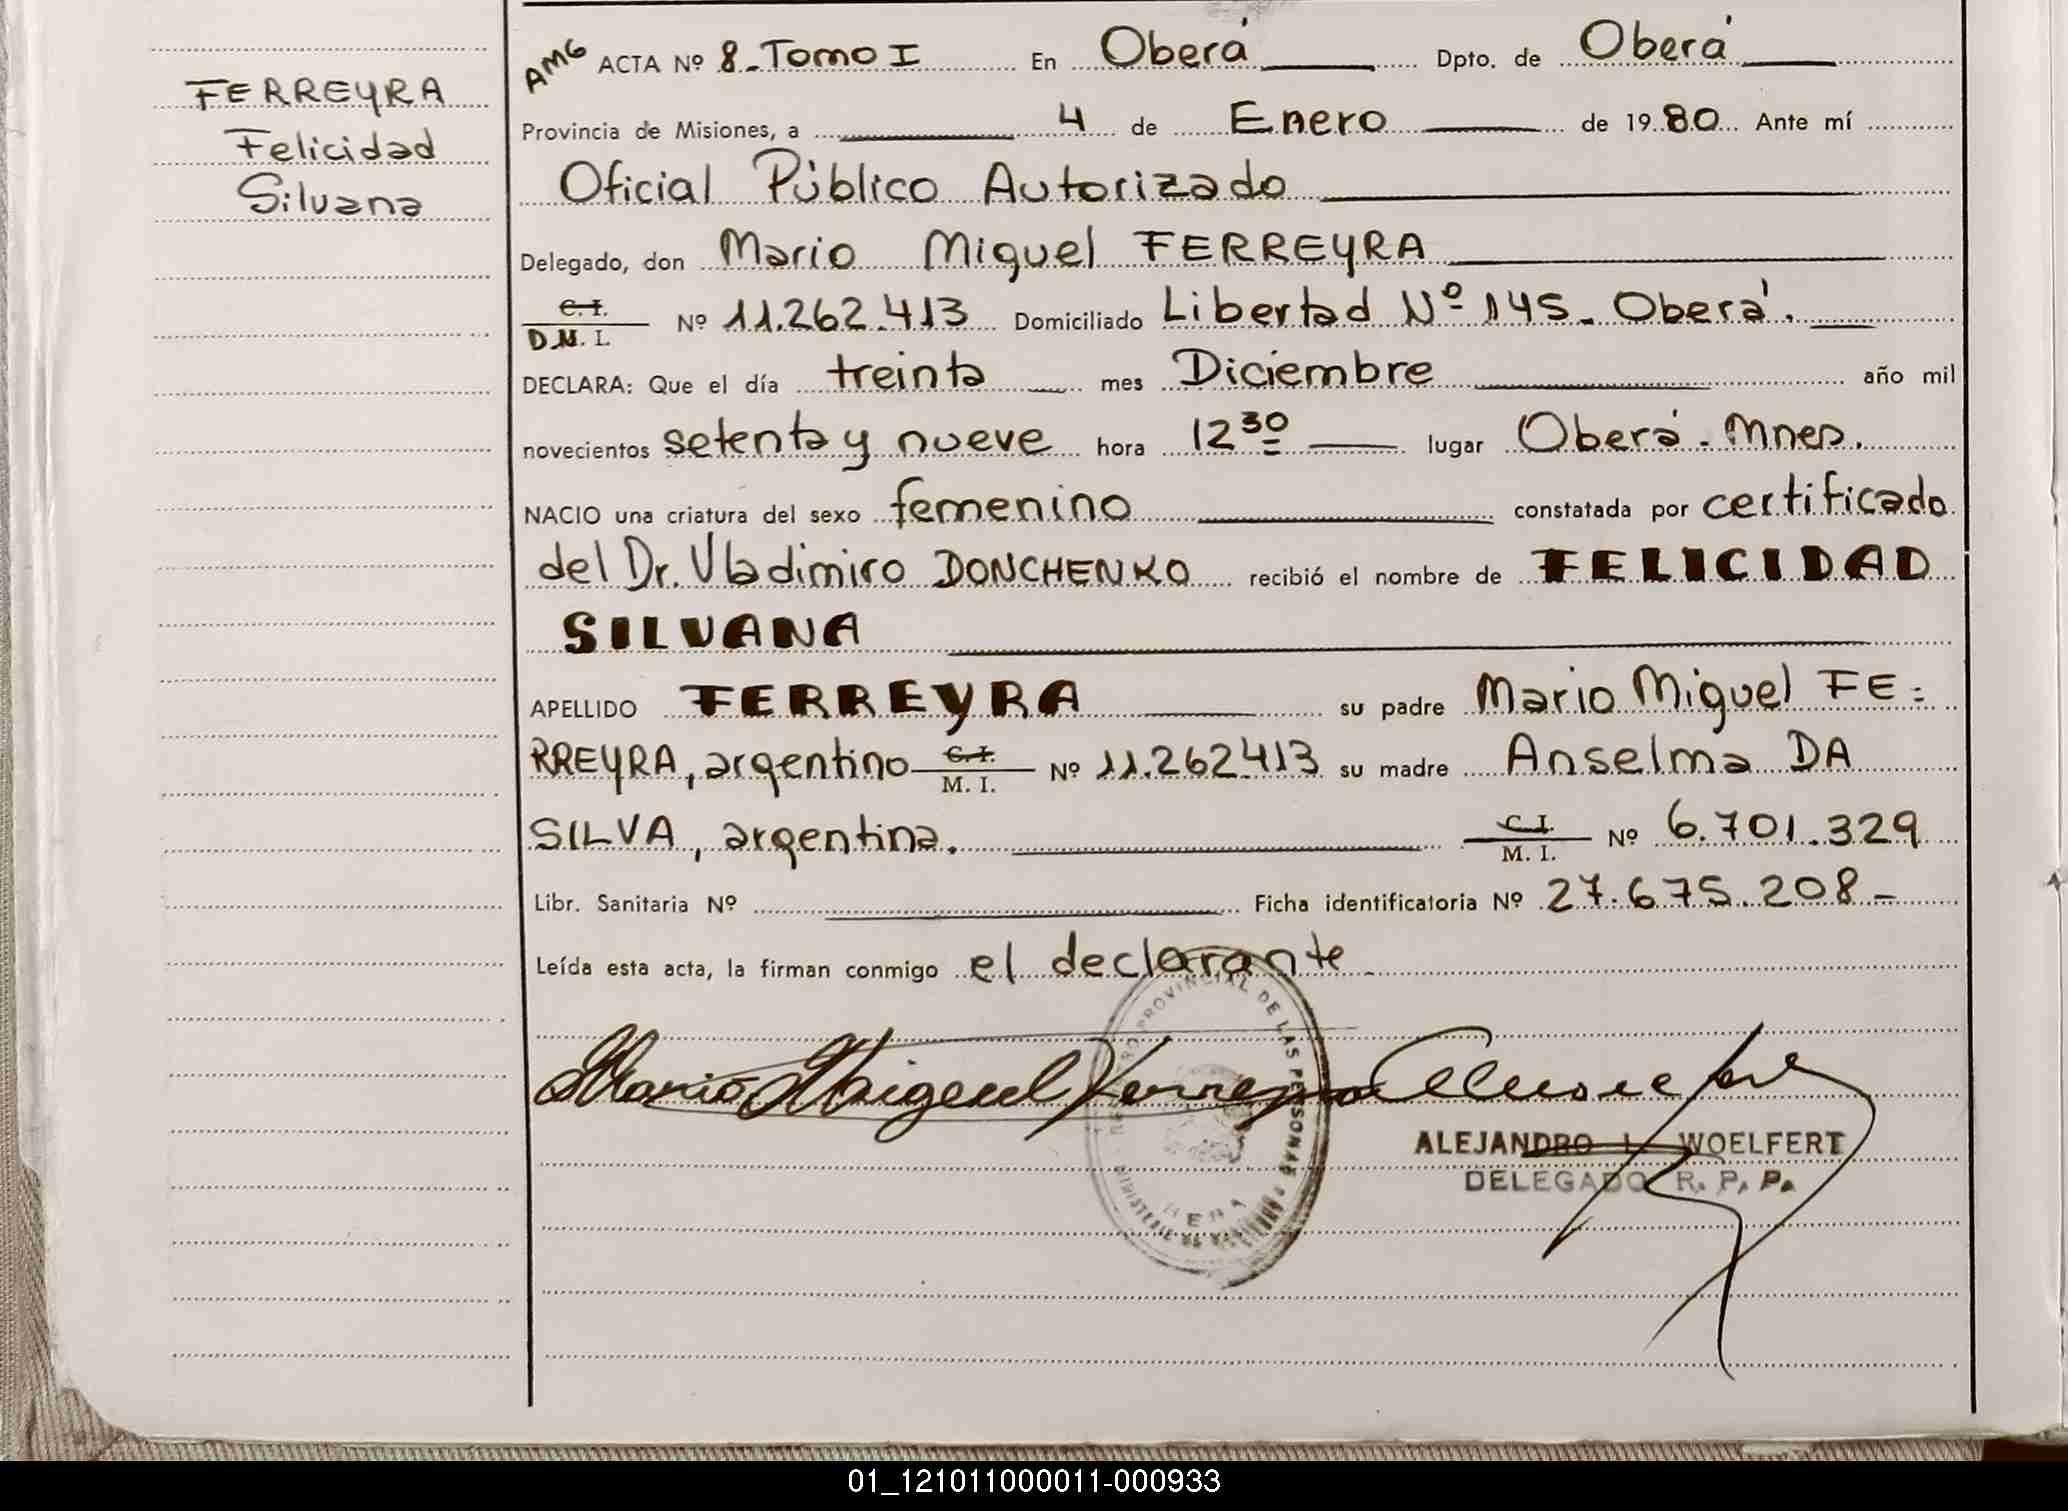 FERREYRA
Felicidad
Silvana
AMG ACTA Nº 8-Tomo I En Oberá Dpto. de Oberá
Provincia de Misiones, a 4 de Enero de 1980 Ante mí
Oficial Público Autorizado
Delegado, don Mario Miguel FERREYRA
C.I.
D.N.I. Nº 11.262.413 Domiciliado Libertad Nº 145- Oberá.
DECLARA: Que el día treinta mes Diciembre año mil
novecientos setenta y nueve hora 12 30 lugar Oberá. Mnes.
NACIO una criatura del sexo femenino constatada por certificado
del Dr. Vladimiro DONCHENKO recibió el nombre de FELICIDAD
SILVANA
APELLIDO FERREYRA su padre Mario Miguel FE=
RREYRA, argentino C.I. M. I. Nº 11.262413 su madre Anselma DA
SILVA, argentina. C I. M. I. Nº 6.701.329
Libr. Sanitaria Nº Ficha identificatoria Nº 27.675.208-
Leída esta acta, la firman conmigo el declarante
Mario Miguel Ferreyra
PROVINCIAL DE LAS PERSONAS
ALEJANDRO L. WOELFERT
DELEGADO R. P. P.
01_121011000011-000933